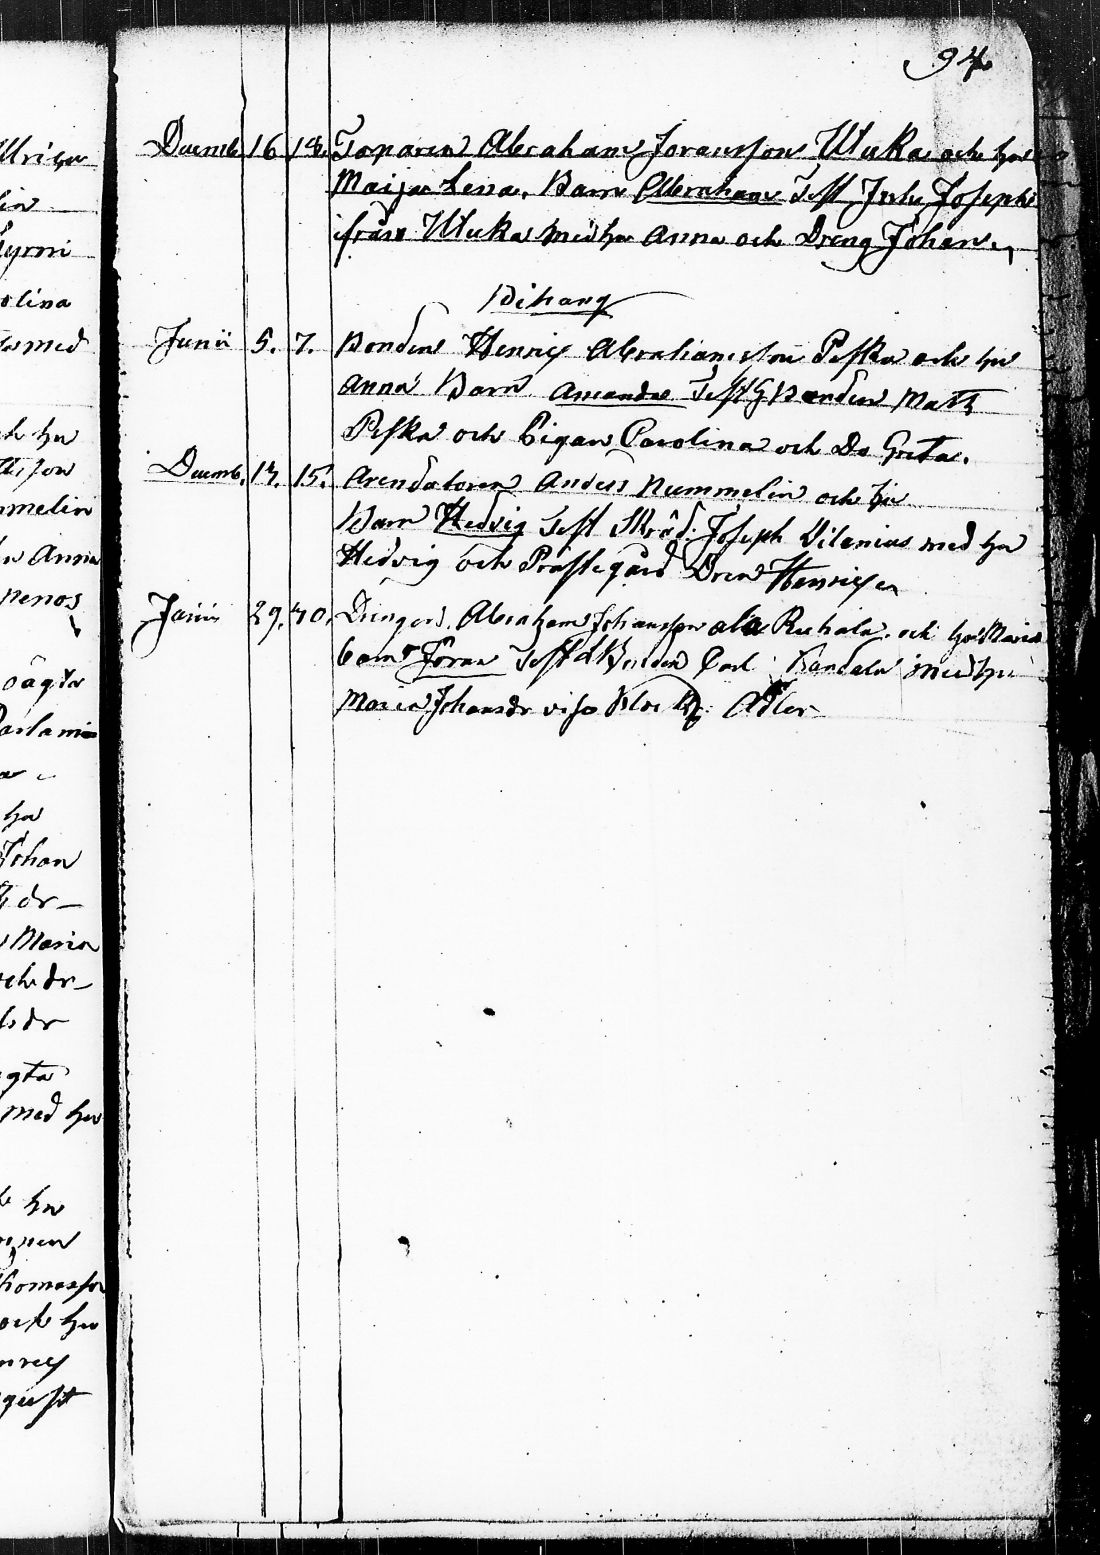 94
Decemb. 16 18. Torparen Abraham Göransson Uluka och hu
Maija Lena. Barn Abraham Test Inh. Joseph
ifrån Uluka med hu Anna och Dreng Johan
Bihang
Junii 5. 7. Bonden Henric Abrahamsson Peska och hu
Anna Barn Amanda Test Bonden Matts
Peska och Pigan Carolina och Do Greta.
Decemb. 13. 15. Arendatoren Anders Nummelin och hu
Barn Hedvig Test Skräd. Joseph Vilenius med hu
Hedvig och Prästegård Dren Henric
Junii 29. 30. Drengen Abraham Johansson ala Ruhala och hu Maria
barn Göran Test Bonden Carl Kandala med hu
Maria Johansdr Adler
Ulrica
lin
Kyrni
olina
med
och hu
son
mmelin
Anna
penos
ogta
hu
Johan
dr
Maria
och dr
dr
gta
med hu
hu
Thomasson
och hu
nric
gust